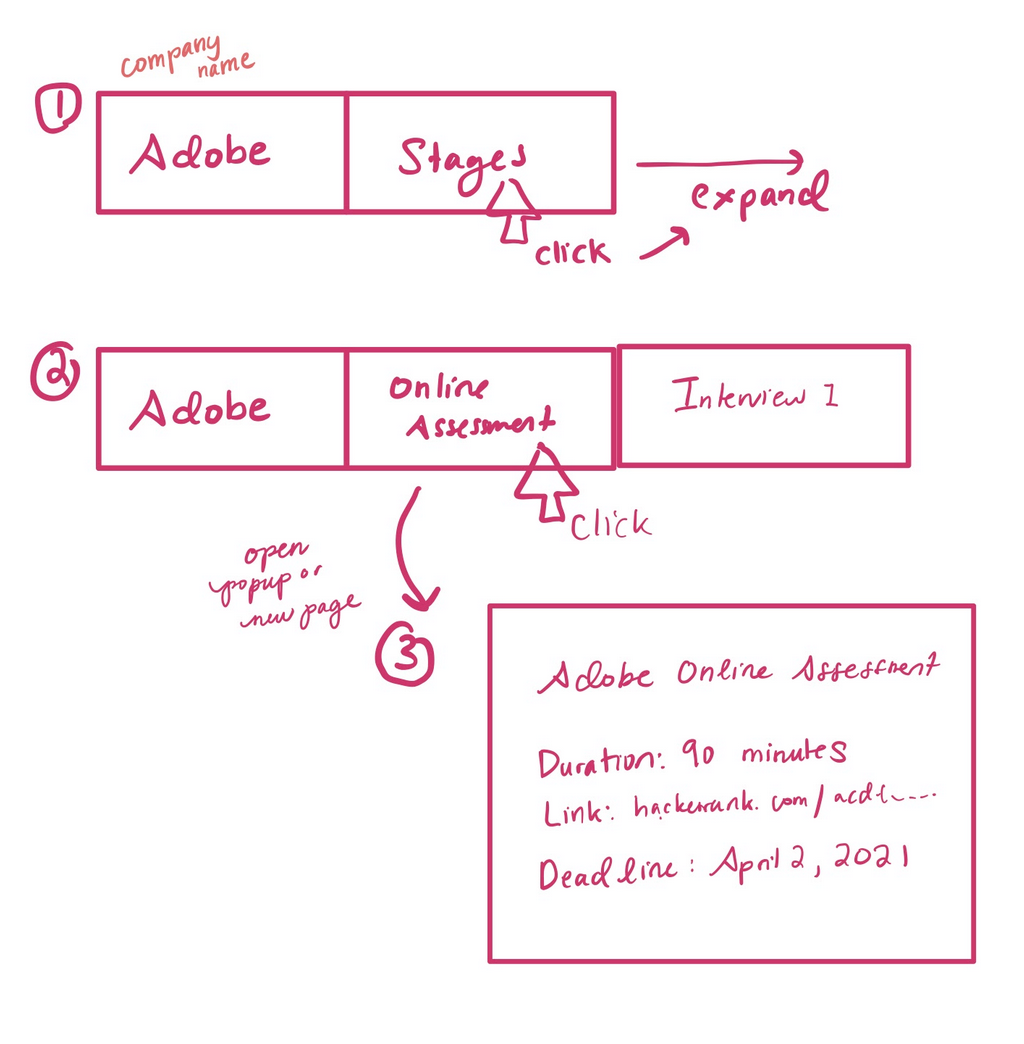 company
name
1
Adobe
Stages
expand
click
2
Adobe
Online
Assessment
Interview 1
click
open
popup or
new page
3
Adobe Online Assessment
Duration: 90 minutes
Link: hackerrank.com/
Deadline: April 2, 2021